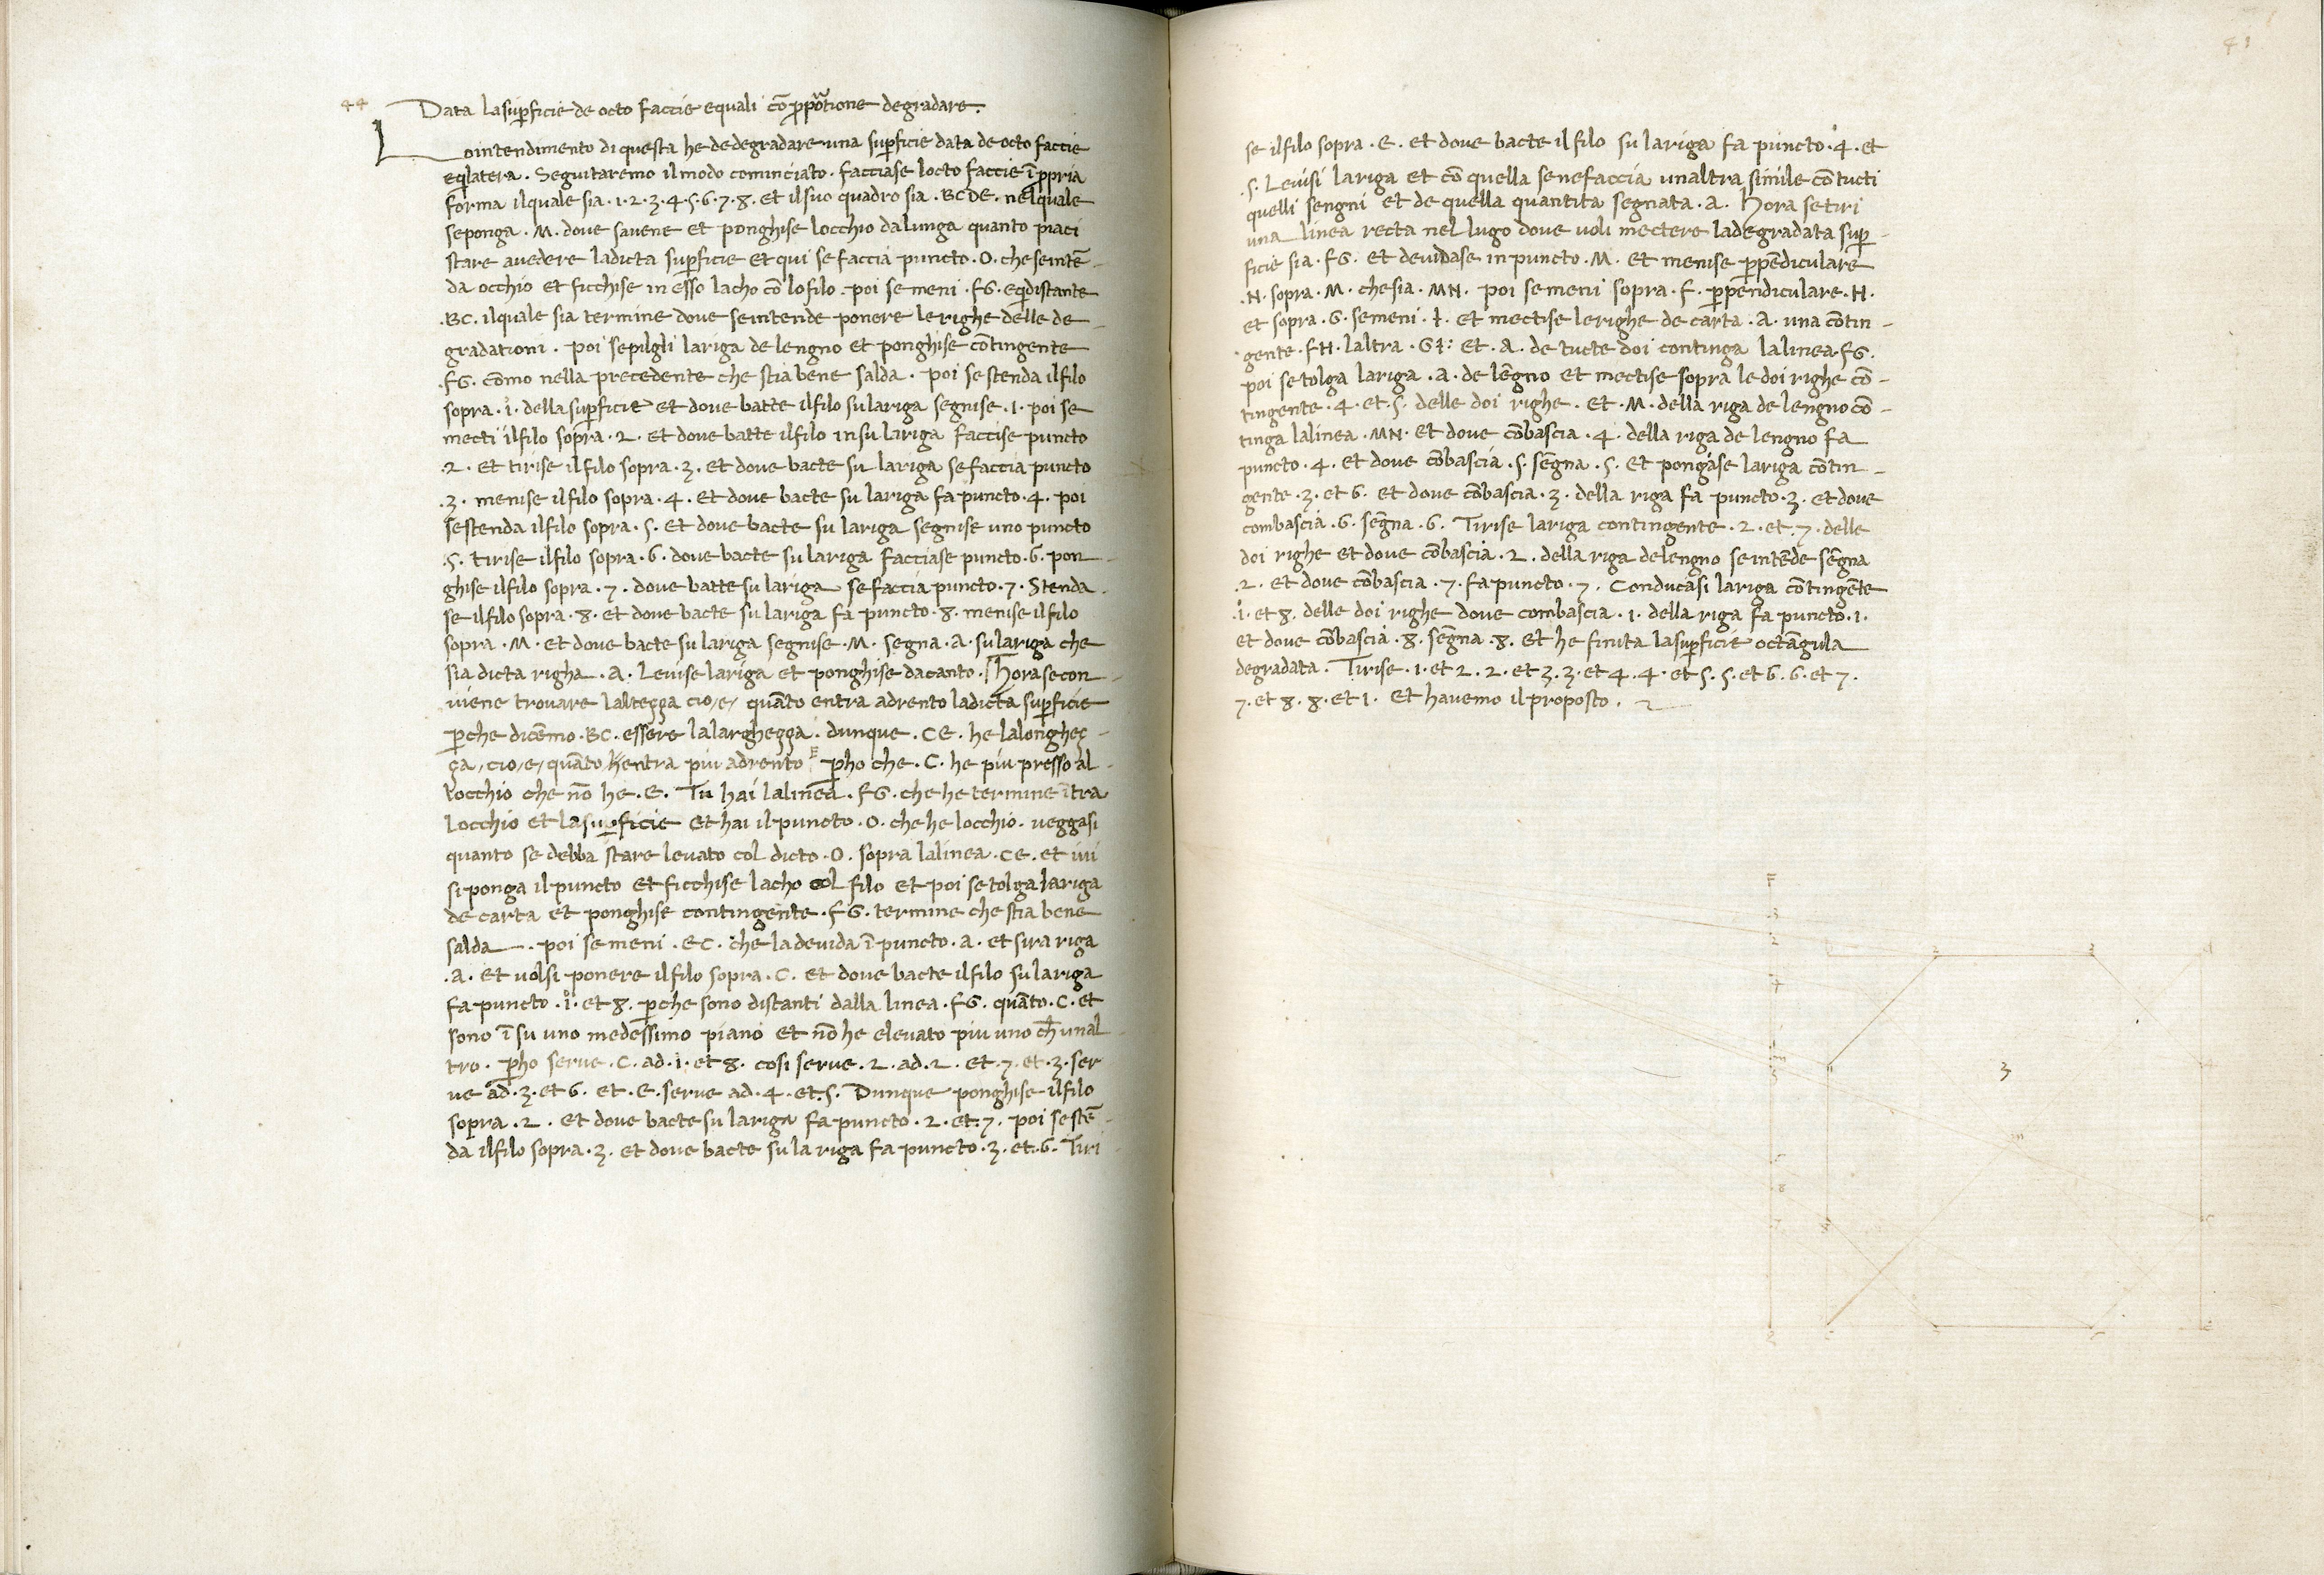 44
Data la suꝑficie de octo faccie equali cō ꝓpōrtione degradare.
Lo intendimento di questa he de degradare una suꝑficie data de octo faccie
eq̄latera . Seguitaremo il modo cominciato . facciase locto faccie ī ꝓpria
forma il quale sia . 1 . 2 . 3 . 4 . 5 . 6 . 7 . 8 . et il suo quadro sia . BCDE . nel quale
se ponga . M . dove savene et ponghise locchio da lunga quanto piaci
stare avedere la dicta suꝑficie et qui se faccia puncto . O . che se intē-
da occhio et ficchise in esso lacho cō lo filo . poi se meni . FG . eq̄distante
. BC . il quale sia termine dove se intende ponere le righe delle de-
gradationi . poi sepilgli la riga de lengno et ponghise cōtingente
. FG . cōmo nella precedente che stia bene salda . poi se stenda il filo
sopra . 1 . della suꝑficie et dove batte il filo su la riga segnise . 1 . poi se
mecti il filo sopra . 2 . et dove batte il filo in su la riga faccise puncto
. 2 . et tirise il filo sopra . 3 . et dove bacte su la riga se faccia puncto
. 3 . menise il filo sopra . 4 . et dove bacte su la riga fa puncto . 4 . poi
se stenda il filo sopra . 5 . et dove bacte su la riga segnise uno puncto
. 5 . tirise il filo sopra . 6 . dove bacte su la riga facciase puncto . 6 . pon-
ghise il filo sopra . 7 . dove batte su la riga se faccia puncto . 7 . Stenda-
se il filo sopra . 8 . et dove bacte su la riga fa puncto . 8 . menise il filo
sopra . M . et dove bacte su la riga segnise . M . segna . A . su la riga che
sia dicta righa . A . Levise la riga et ponghise da canto . Hora se con-
viene trovare laltezza cio/e/ quāto entra adrento la dicta suꝑficie
ꝑche dicēmo . BC . essere la larghezza . dunque . CE . he la longheç-
ça, cio/e/ quāto entra piu adrento ꝑho che . C . he piu presso al
locchio che nō he . E . Tu hai la linea . FG . che he termine ītra
locchio et la suꝑficie et hai il puncto . O . che he locchio . veggasi
quanto se debba stare levato col dicto . O . sopra la linea . CE . et ivi
si ponga il puncto et ficchise lacho col filo et poi se tolga la riga
de carta et ponghise contingente . FG . termine che stia bene
salda . poi se meni . EC . che la devida ī puncto . A . et sira riga
. A . et volsi ponere il filo sopra . C . et dove bacte il filo su la riga
fa puncto . 1 . et 8 . ꝑche sono distanti dalla linea . FG . quāto . C . et
sono ī su uno medessimo piano et nō he elevato piu uno cħ unal-
tro . ꝑho serve . C . ad . 1 . et 8 . cosi serve . 2 . ad . 2 . et . 7 . et . 3 . ser-
ve ad . 3 . et 6 . et . E . serve ad . 4 . et . 5 . Dunque ponghise il filo
sopra . 2 . et dove bacte su la riga fa puncto . 2 . et . 7 . poi se stē-
da il filo sopra . 3 . et dove bacte su la riga fa puncto . 3 . et . 6 . Tiri-
41
se il filo sopra . E . et dove bacte il filo su la riga fa puncto . 4 . et
. 5 . Levisi la riga et cō quella se ne faccia unaltra simile cō tucti
quelli sengni et de quella quantita segnata . A . Hora se tiri
una linea recta nel lugo dove voli mectere la degradata suꝑ-
ficie sia . FG . et devidase in puncto . M . et menise ꝑpēdiculare
. N . sopra . M . che sia . MN . poi se meni sopra . F . ꝑpendiculare . H .
et sopra . G . se meni . I . et mectise le righe de carta . A . una cōtin-
gente . FH . laltra . GI . et . A . de tucte doi continga la linea . FG .
poi se tolga la riga . A . de lēgno et mectise sopra le doi righe cō-
tingente . 4 . et . 5 . delle doi righe . et . M . della riga de lengno cō-
tinga la linea . MN . et dove cōbascia . 4 . della riga de lengno fa
puncto . 4 . et dove cōbascia . 5 . sēgna . 5 . et pongase la riga cōtin-
gente . 3 . et 6 . et dove cōbascia . 3 . della riga fa puncto . 3 . et dove
combascia . 6 . sēgna . 6 . Tirise la riga contingente . 2 . et . 7 . delle
doi righe et dove cōbascia . 2 . della riga de lengno se intēde sēgna
. 2 . et dove cōbascia . 7 . fa puncto . 7 . Conducasi la riga cōtingēte
. 1 . et 8 . delle doi righe dove combascia . 1 . della riga fa puncto . 1 .
et dove cōbascia . 8 . sēgna . 8 . et he finita la suꝑficie octāgula
degradata . Tirise . 1 . et 2 . 2 . et 3 . 3 . et 4 . 4 . et 5 . 5 . et 6 . 6 . et 7 .
7 . et 8 . 8 . et 1 . et havemo il proposto .
F
3
2
2
3
3
m
8
7